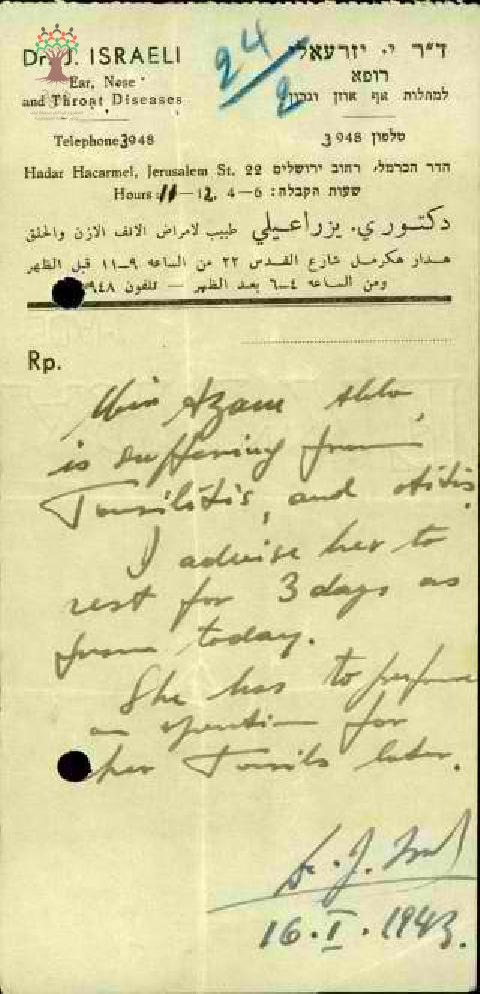 Dr. J. ISRAELI
Ear, Nose
and Throat Diseases
Telephone 3948
Hadar Hacarmel, Jerusalem St. 22
Hours: 11—12, 4—6
ד״ר י. יזרעאלי
רופא
למחלות אף אוזן וגרון
טלפון 3948
הדר הכרמל, רחוב ירושלים 22
שעות הקבלה:
24
2
دكتوري. يزراعيلي طبيب لامراض الانف الاذن والحلق
هدار هكرمل شارع القدس ٢٢ من الساعه ٩—١١ قبل الظهر
ومن الساعه ٤—٦ بعد الظهر — تلفون ٩٤٨
Rp.
Miss Azam
is suffering from
Tonsilitis, and otitis.
I advise her to
rest for 3 days as
from today.
She has to perform
an operation for
her Tonsils later.
Dr. J. Israeli
16.I.1943.